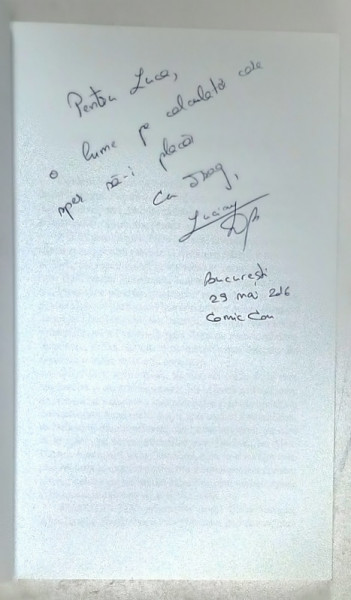 Pentru Luca,
o lume pe calculator care
sper să-i placă
Cu drag,
Lucian
București
29 mai 2016
Comic Con